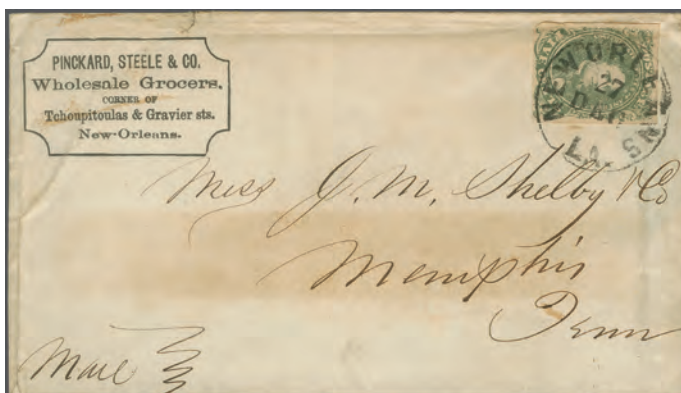 PINCKARD, STEELE & CO.
Wholesale Grocers,
CORNER OF
Tchoupitoulas & Gravier sts.
New-Orleans.
NEW ORLEANS
27
DEC
LA.
Mess J. M. Shelby & Co
Memphis
Tenn
Mail